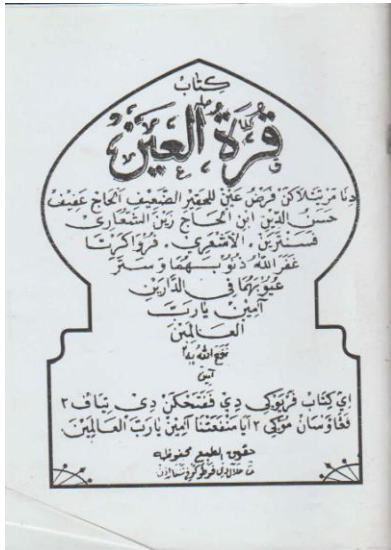 كتاب
قرة العين
دنا مرتيلاكن فرض عين للحقير الضعيف الحاج عفيف
حسن الدين ابن الحاج زين الشعاري
فسنترين الأشعري، فروواكرتا
غفر الله ذنوبهما وستر
عيوبهما في الدارين
آمين يا رب
العالمين
نفع الله به
آمين
اي كتاب
دي دي تياف ٢
٢ ايا منفعتنا آمين يا رب العالمين
حقوق الطبع محفوظة